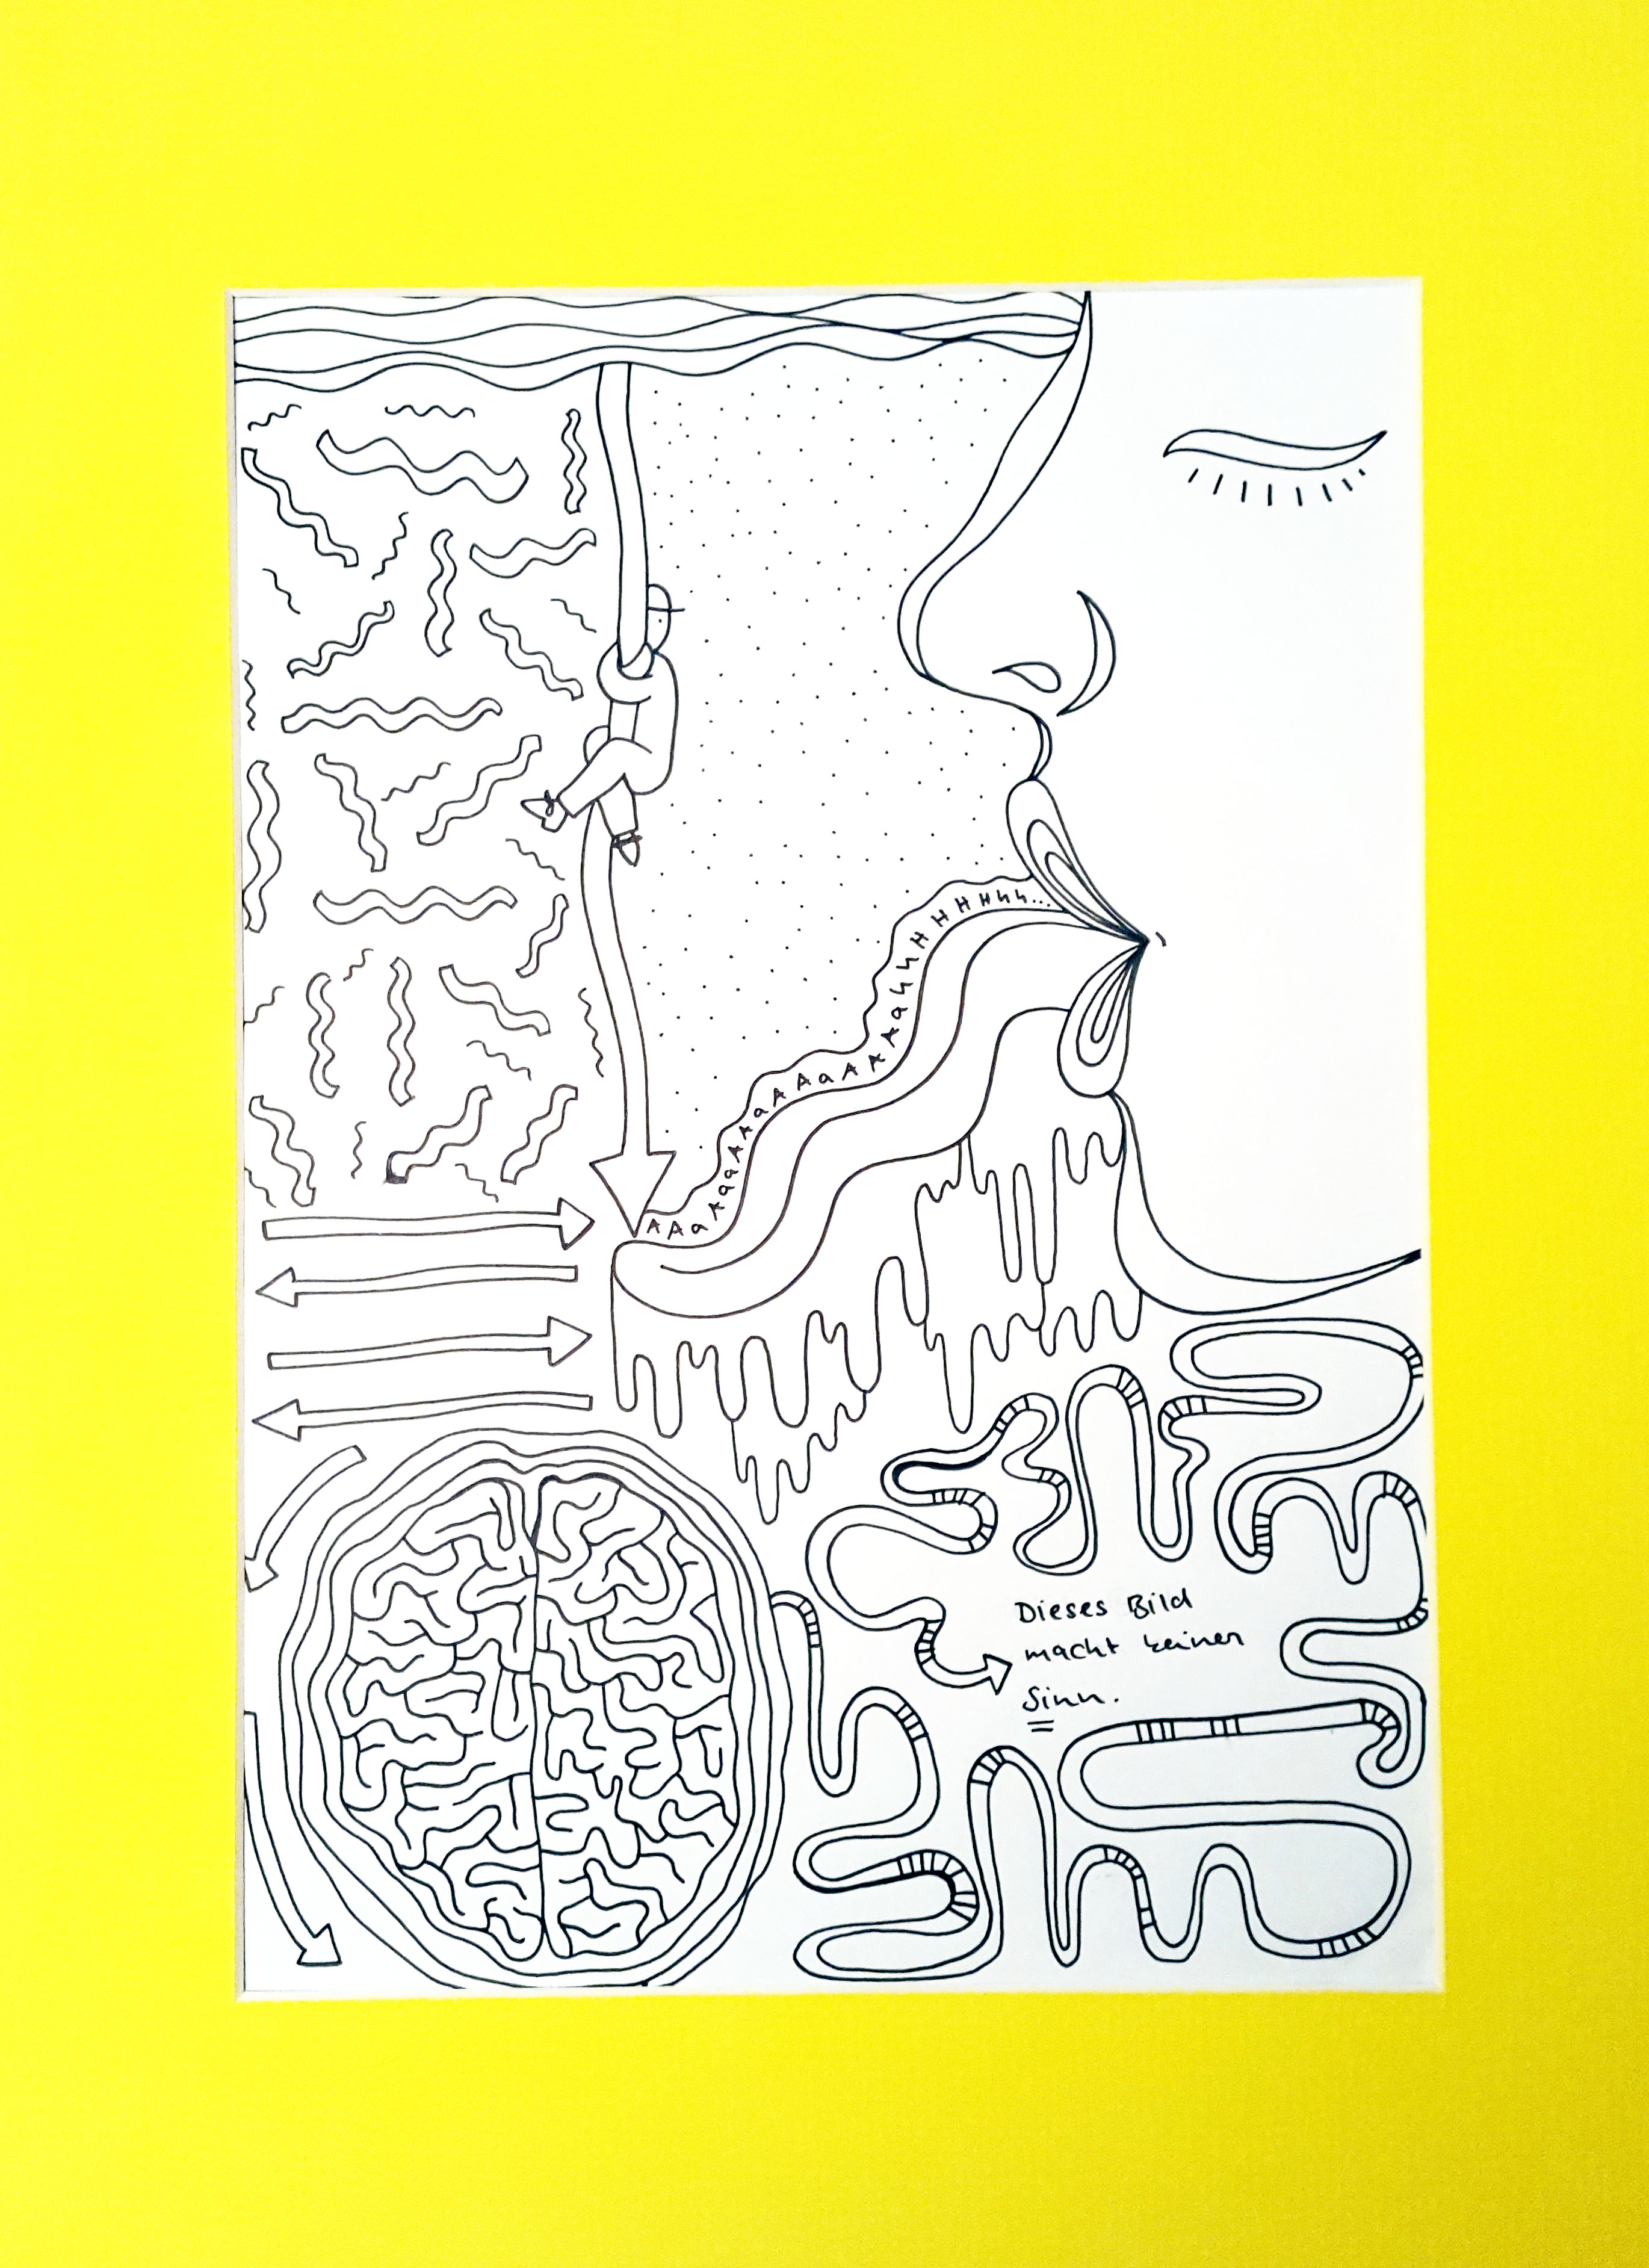 AAaAaaAAaAAaAAAahhHHHHhh...
Dieses Bild
macht keinen
Sinn.